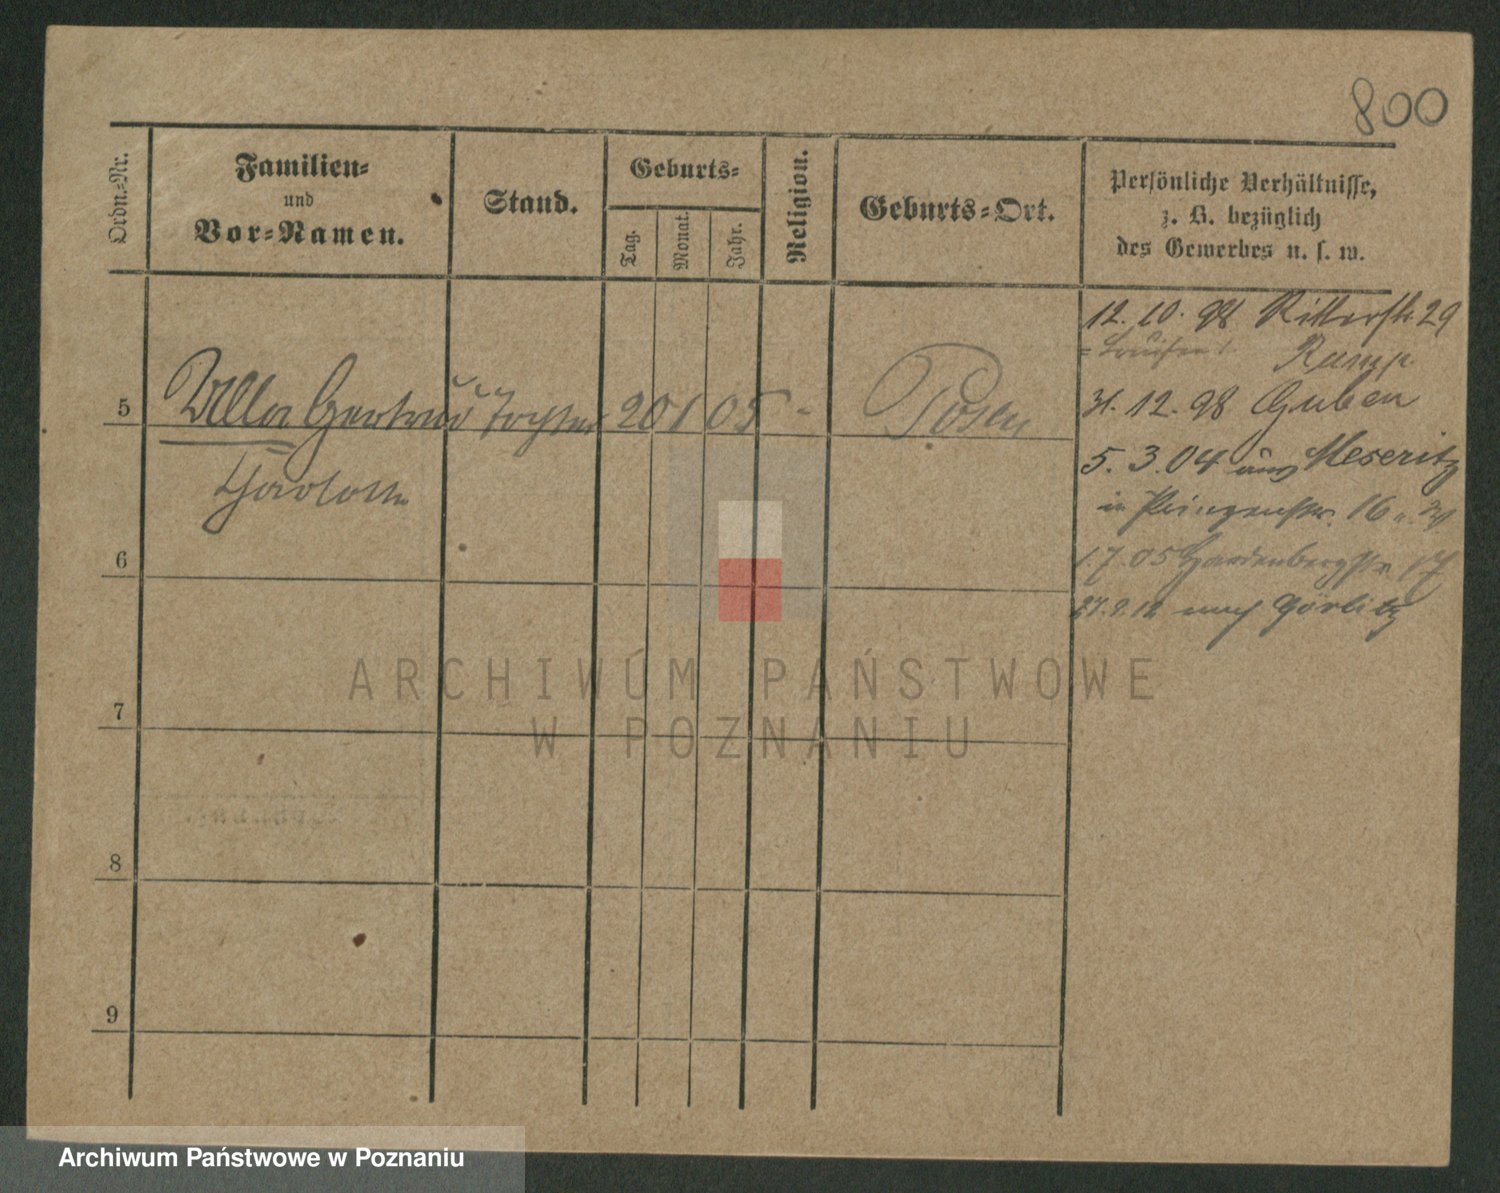 800
Ordn.=Nr.
Familien=
und
Vor=Namen.
Stand.
Geburts=
Tag.
Monat.
Jahr.
Religion.
Geburts=Ort.
Persönliche Verhältnisse,
z. B. bezüglich
des Gewerbes u. s. w.
12. 10. 98 Ritterstr 29
31. 12. 98 Guben
5. 3. 04 aus Meseritz
in Prinzenstr. 16
1. 7. 05 Hardenbergstr 17
27. 9. 12 nach Görlitz
5 Ulla Gertrud Tochter 20 1 05 - Posen
Charlotte
6
7
8
9
ARCHIWUM PAŃSTWOWE
W POZNANIU
Archiwum Państwowe w Poznaniu